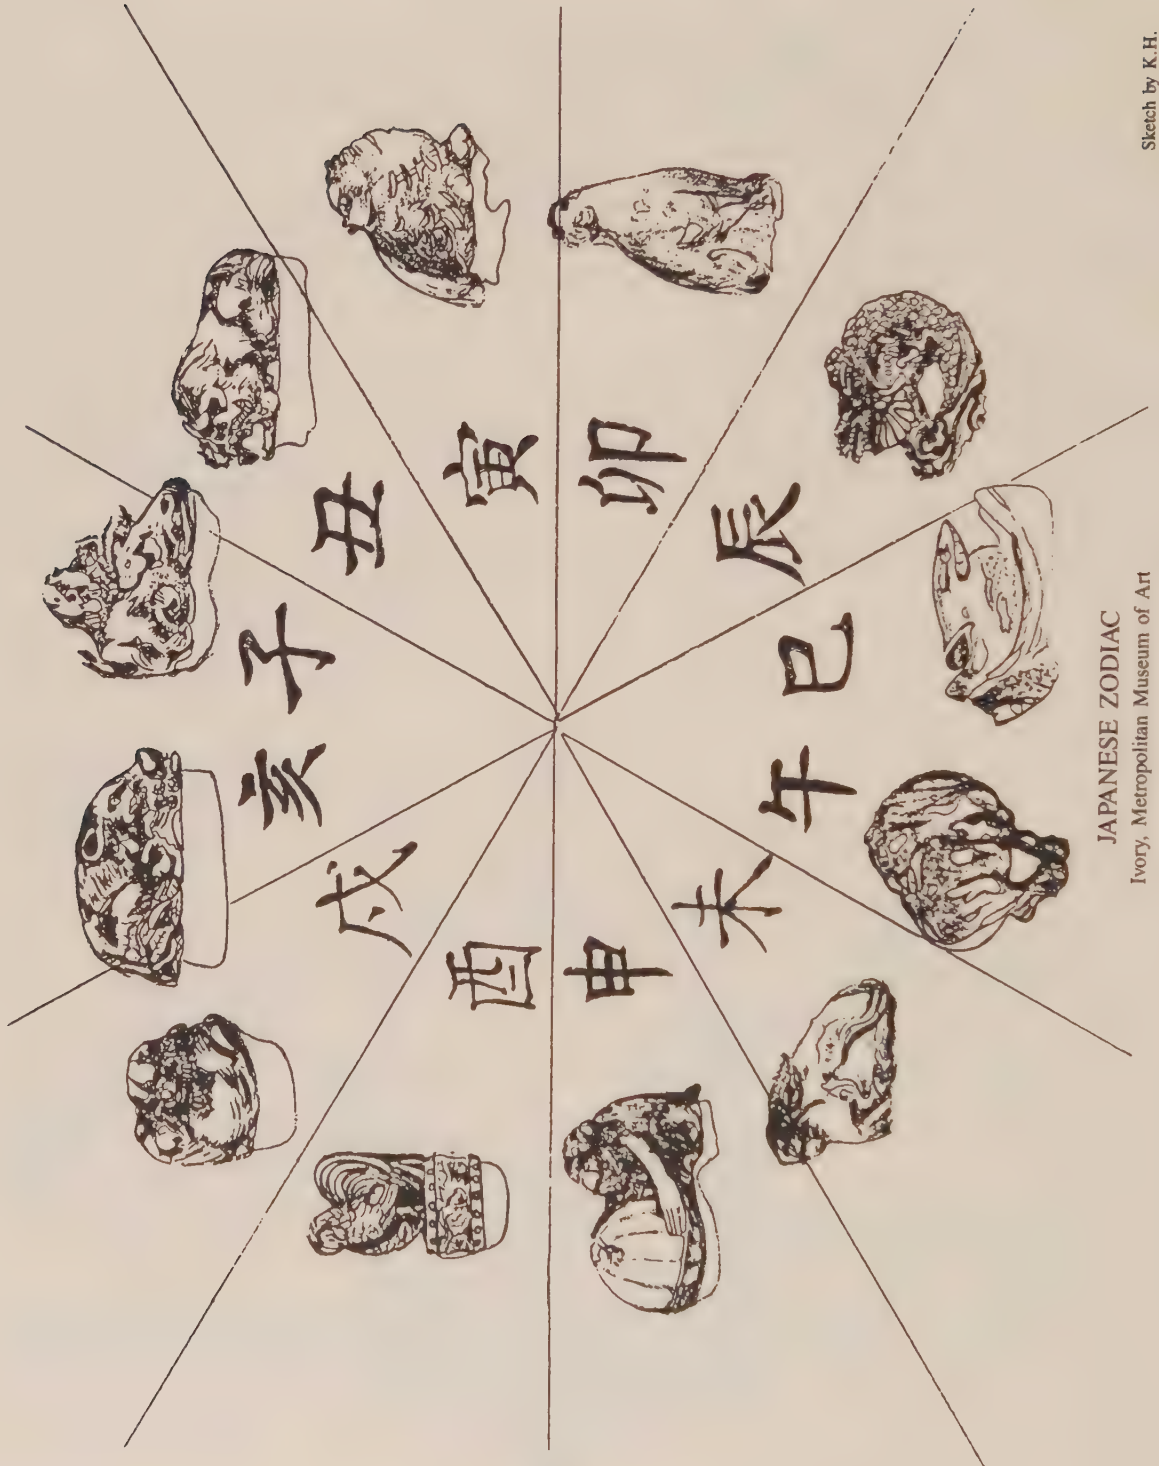 子
丑
寅
卯
辰
巳
午
未
申
酉
戌
亥
JAPANESE ZODIAC
Ivory, Metropolitan Museum of Art
Sketch by K.H.